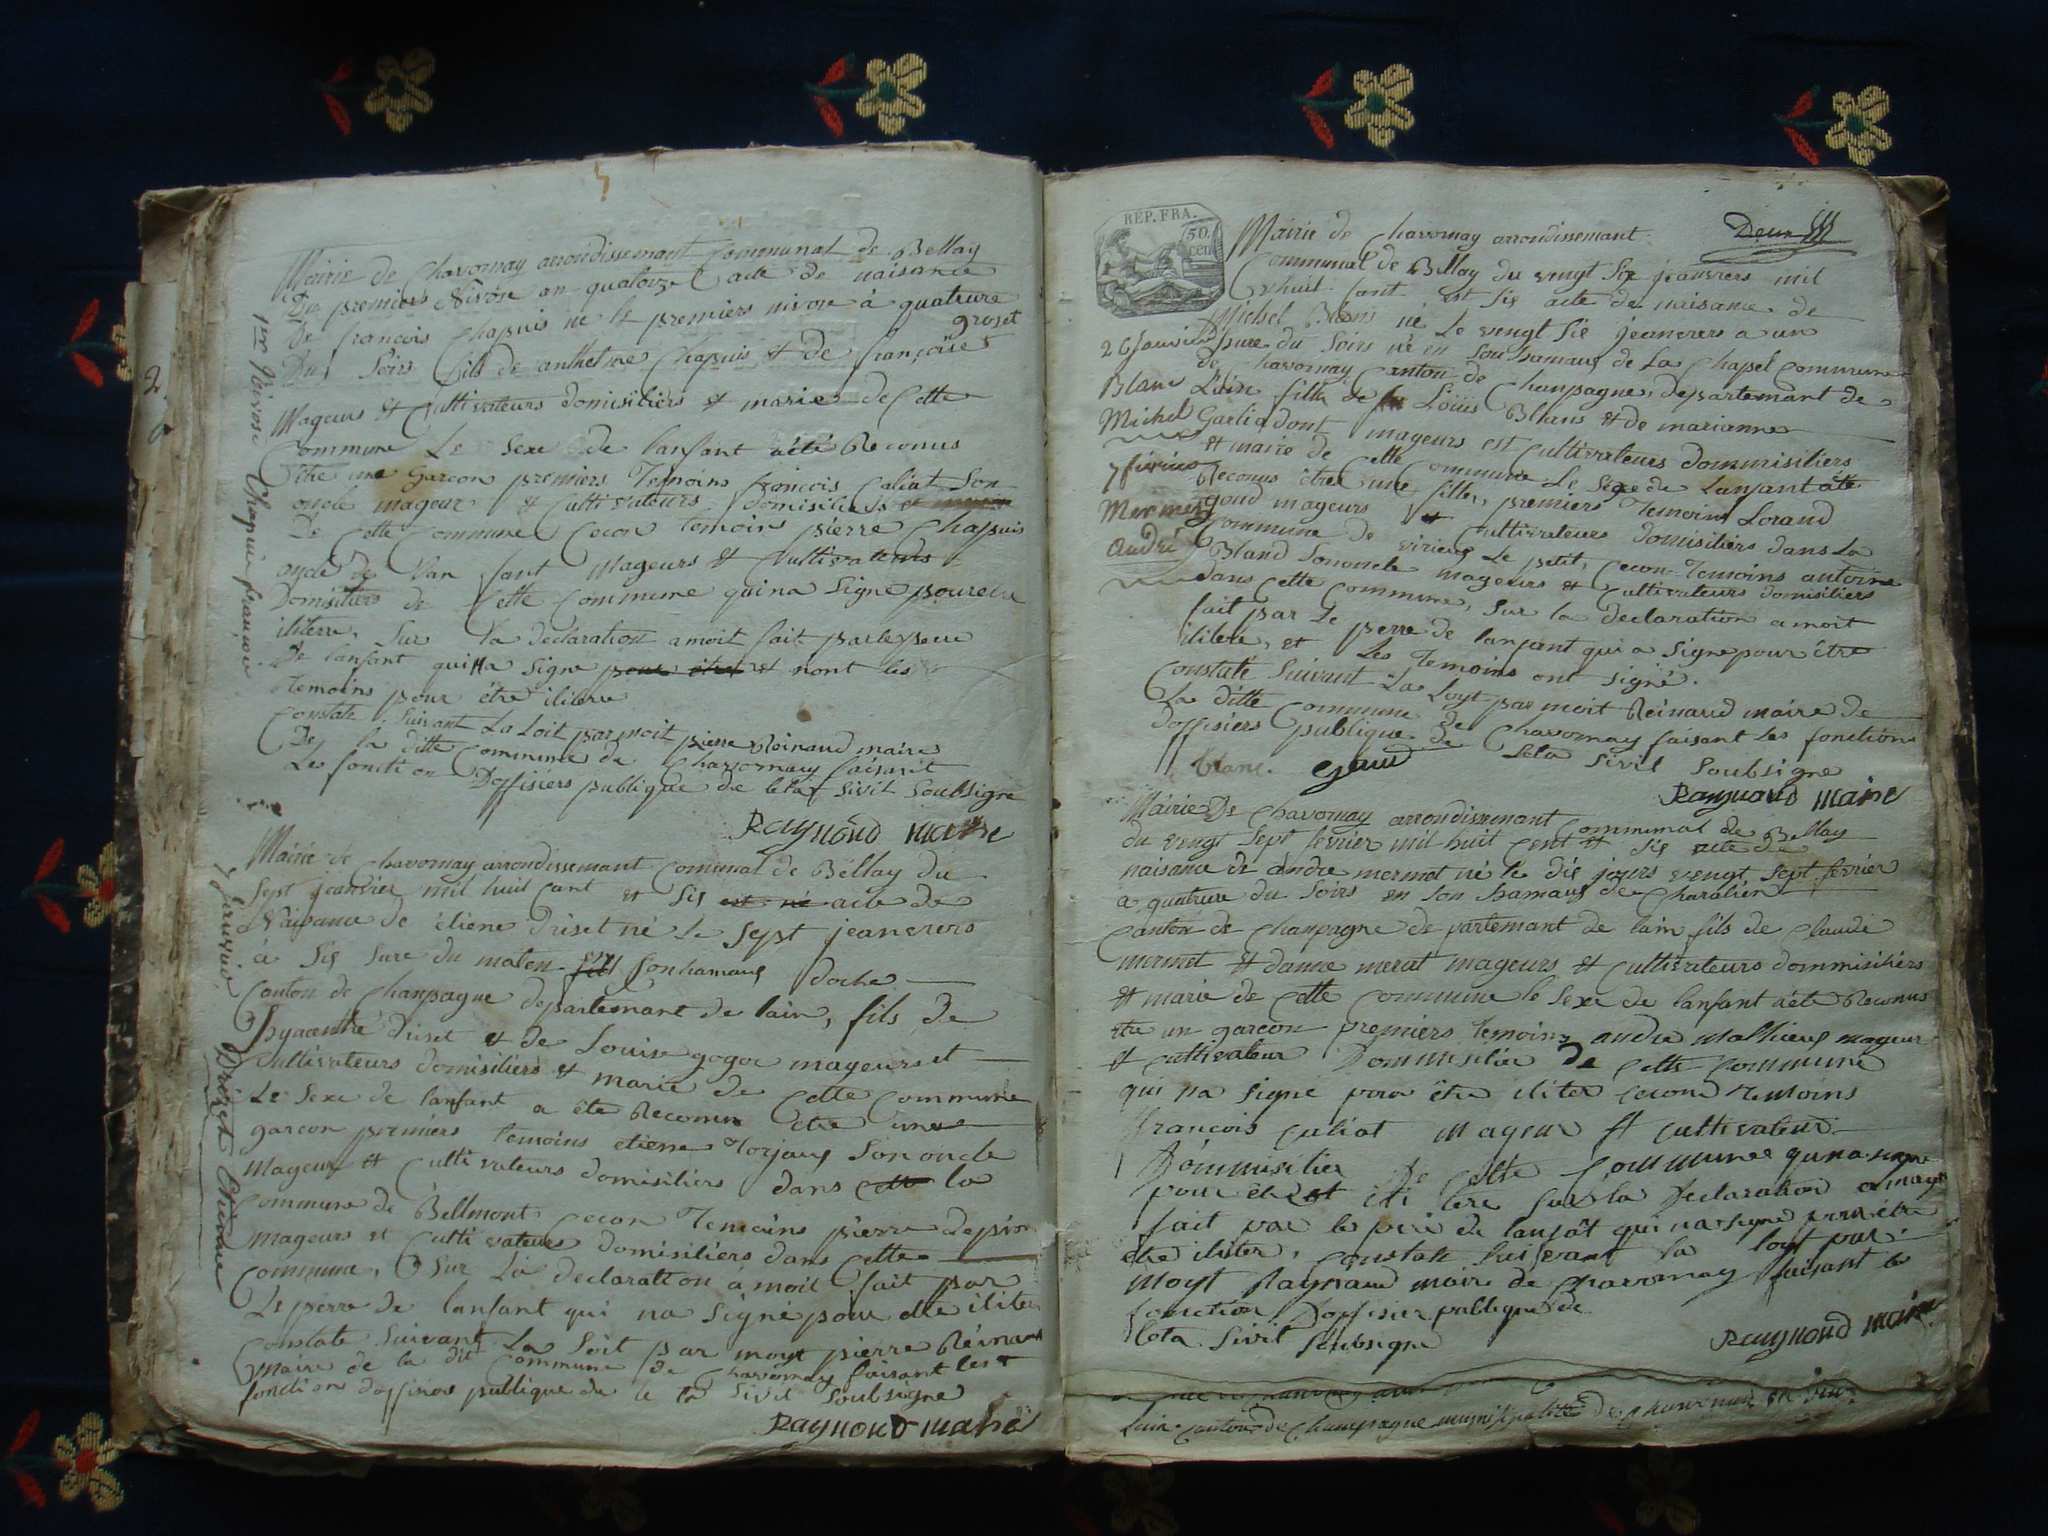 Mairie de Chavornay arrondissemant Communal de Bellay
Du premiers Nivose an quatorze acte de naisance
De francois Chapuis né le premiers nivose à quatreure
Dus Soirs fils de anthelme Chapuis et de françoise
grozet
Mageurs et Cultivateurs domisiliers et marié de Cette
Commune Le Sexe de lanfant aété Reconus
être une Garcon premiers Temoins françois Caliat Son
oncle mageur et Cultivateurs domisiliers
De Cette Commune Cecon temoins pierre Chappuis
oncle de lan fant Mageurs et Cultivateurs
Domisiliers de Cette Commune quina Signe pouretre
iliterre, Sur la declaration amoit fait parleperre
De lanfant quina Signe pour être et nont les
Temoins pour être iliterre
Constate Suivant La Loit parmoit pierre Reinaud maire
De la ditte Commune de Chavornay faisant
Les fonction Doffisiers publique de leta Sivil Soubsigne
Raynaud maire
1er Nivose Chapuis francois
Mairie de Chavornay arrondissemant Comunal de Béllay du
Sept jeanvier mil huil Cant et Sis est né acte de
Naisance de étiene Driset né le Sept jeanvers
à Sis sure du maten fils Sonhamaus doche
Canton de Chanpagne departemant de lain, fils de
Hyacenthe driset et de Louise gogoe mageurs et
Cultivateurs domisiliers et marie de Cette Commune
Le Sexe de lanfant a été Reconu être une
garcon premiers temoins etiene Torjaus Sononcle
Mageur et Cultivateurs domisiliers dans cette la
Commune de Béllmont Cecon Temoins pierre depion
mageurs et Cultivateurs domisiliers dans Cette
Commune, Sur La declaration amoit fait par
Le perre de lanfant qui na Signé pour etre iliter
Constate Suivant La Loit par moyt pierre Réinaud
maire de la dit Commune de Chavornay faisant les
fonction doffisiers publique de le ta Sivil Soubsigne
Raynaud maire
7 janvier Driset Etienne
2
REP. FRA.
50
cen
Deux
Mairie de Chavornay arrondissemant
Communal de Béllay du vengt Six jeanviers mil
huil Cant est Sis acte de naisance de
Michel Blans né Le vengt Sis jeanvers a un
sure du Soirs né en Son hamaus de La Chapel Commune
de Chavornay Canton de Chanpagne, departemant de
Lain fille de Loüis Blans et de marianne
Garlio dont mageurs est Cultivateurs dommisiliers
et marie de Cette Commune Le Sexe de Lanfant aété
Reconus être une fille, premiers Temoins Lorand
goud mageurs et Cultivateurs domisiliers dans La
Commune de virieux Le petit, Cecon Temoins antoine
Bland Sononcle mageurs et Cultivateurs domisiliers
dans Cette Commune, Sur la declaration amoit
fait par Le perre de lanfant qui a Signe pour être
ilitere, et Les Temoins ont Signé.
Constaté Suivant La Loyt par moit Réinaud maire de
La ditte Commune de Chavornay faisant les fonction
doffisiers publique de leta Sivil Soubsigne
blanc. goud
Raynaud maire
26 Janvier
Blanc
Michel
7 février
Mermet
André
Mairie De Chavornay arrondissemant Communal de Béllay
du vengt Sept fevrier mil huit Cent et Sis acte de
naisance de andre mermet né le dis jours vengt Sept fevrier
a quatreure du Soirs en Son hamaus de Charalier
Canton de Chanpagne departemant de lain fils de Claude
mermet et danne merat mageurs et Cultivateurs dommisiliers
et marie de Cette Commune le Sexe de lanfant aété Reconus
etre un garcon premiers temoins andre Mathieus mageur
et Cultivateur Dommisilier de Cette Commune
qui na Signe pour être iliter Cecond Temoins
françois Culiat Mageur et Cultivateur
Dommisilier De Cette Commune quina signe
pour être ili tere Sur la Declaration a moyt
fait par le pere de lanfat qui na signe pour être
être iliter, Constate Suivant la loyt par
Moyt Raynaud maire de Chavornay faisant le
fonction Doffisier publique de
leta Sivil Soubsigne
Raynaud maire
Lain Canton de Champagne municipalité de Chavornay